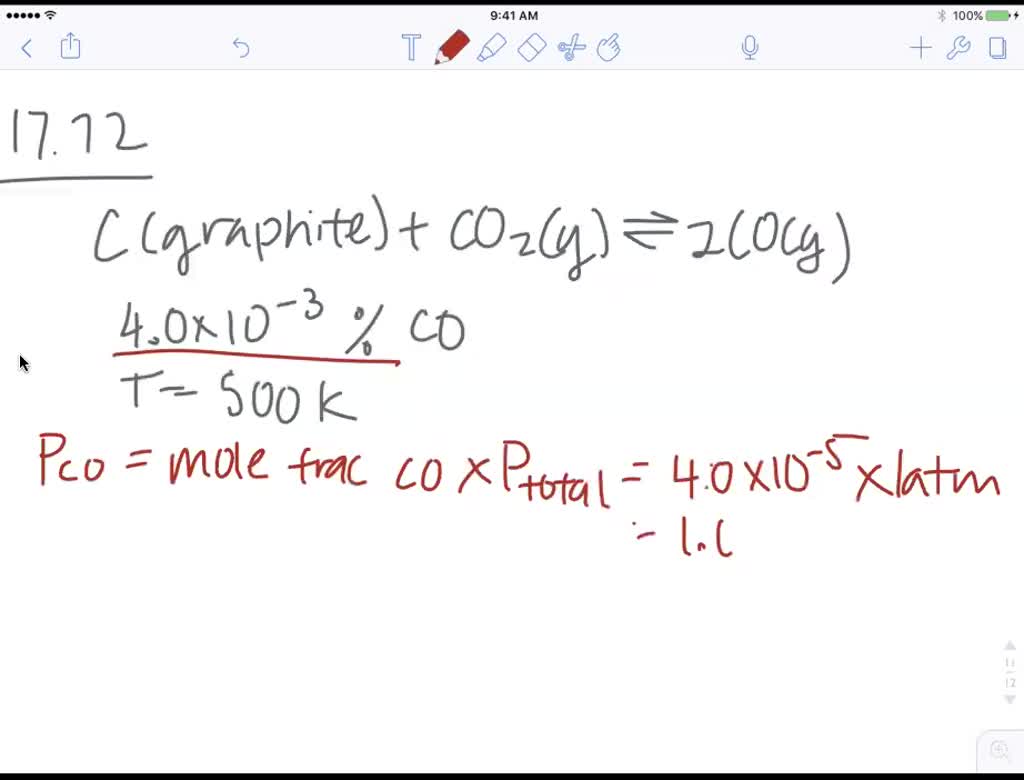 9:41 AM
100%
T
17.72
C(graphite) + CO₂(g) ⇌ 2CO(g)
4.0×10⁻³ % CO
T = 500 K
Pco = mole frac CO × Ptotal = 4.0×10⁻⁵ × 1atm
= 1.(
11
12